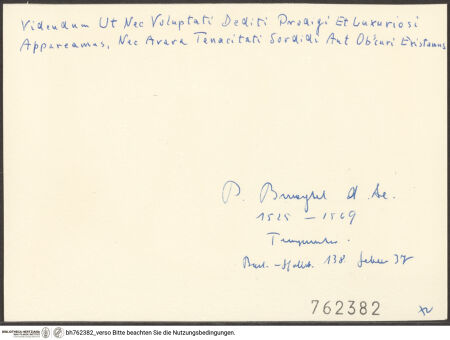 Videndum Ut Nec Voluptati Dediti Prodigi Et Luxuriosi
Appareamus, Nec Avara Tenacitati Sordidi Aut Obscuri Existamus
P. Brueghel d. Ae.
1525 – 1569
138
37
762382
BIBLIOTHECA HERTZIANA bh762382_verso Bitte beachten Sie die Nutzungsbedingungen.